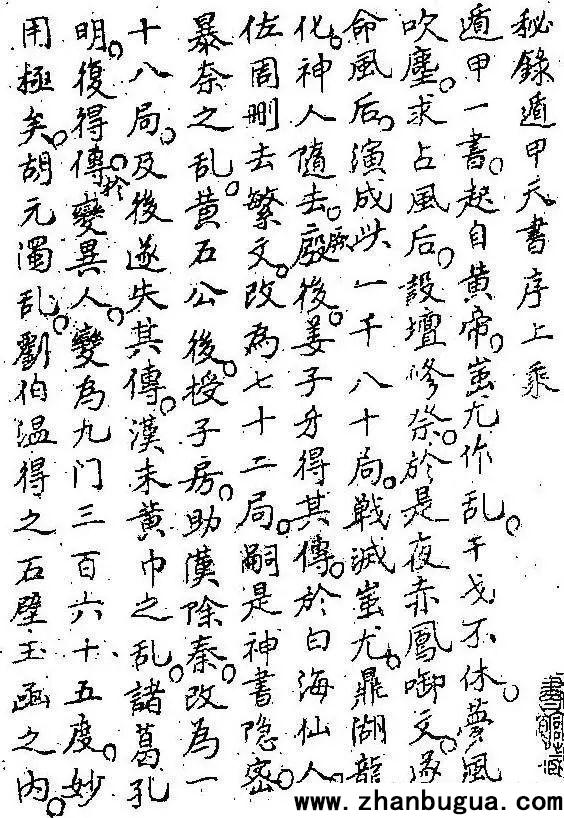 秘錄遁甲天書序上乘
遁甲一書。起自黃帝。蚩尤作乱。干戈不休。夢風
吹塵。求占風后。設壇修祭。於是夜赤鳳啣文。遂
命風后。演成此一千八十局。戰滅蚩尤。鼎湖龍
化。神人隨去。厥後。姜子牙得其傳。於白海仙人。
佐周刪去繁文。改為七十二局。嗣是神書隐密。
暴秦之乱。黃石公後授子房。助漢除秦。改為一
十八局。及後遂失其傳。漢末黃巾之乱。諸葛孔
明。復得傳於變異人。變為九门三百六十五度。妙
用極矣。胡元濁乱。劉伯温得之石壁玉函之內。
www.zhanbugua.com